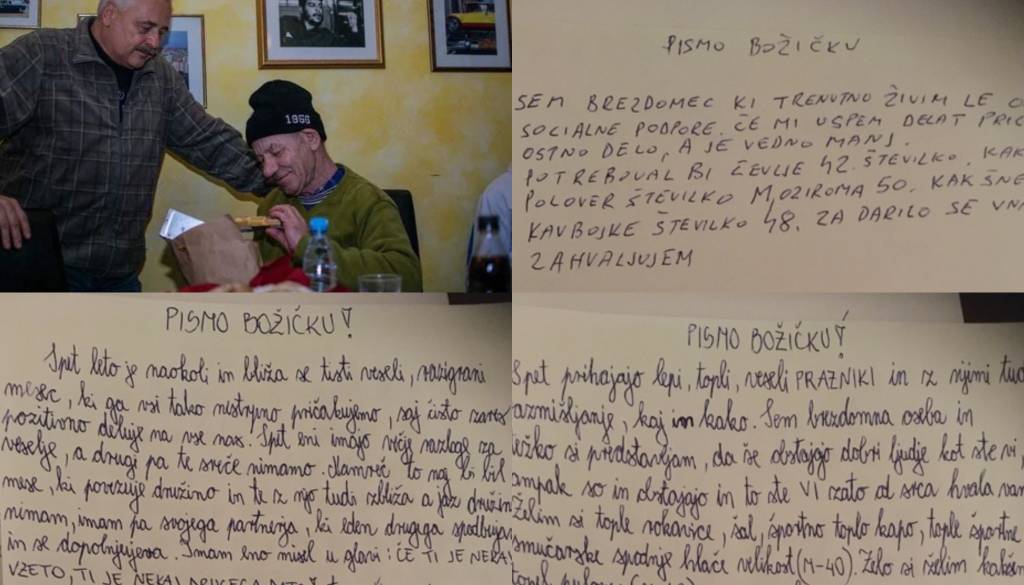 1966
PISMO BOŽIČKU
SEM BREZDOMEC KI TRENUTNO ŽIVIM LE O
SOCIALNE PODPORE. ČE MI USPEM DELAT PRIL
OSTNO DELO, A JE VEDNO MANJ.
POTREBOVAL BI ČEVLJE 42. ŠTEVILKO, KAK
POLOVER ŠTEVILKO M OZIROMA 50. KAKŠNE
KAVBOJKE ŠTEVILKO 48. ZA DARILO SE VNA
ZAHVALJUJEM
PISMO BOŽIČKU!
Spet leto je naokoli in bliža se tisti veseli, razigrani
mesec, ki ga vsi tako nestrpno pričakujemo, saj čisto zares
pozitivno deluje na vse nas. Spet eni imajo večje razloge za
veselje, a drugi pa te sreče nimamo. Namreč to naj bi bil
mesec, ki povezuje družino in te z njo tudi zbliža a jaz družin
nimam, imam pa svojega partnerja, ki eden drugega spodbuja
in se dopolnjujeva. Imam eno misel v glavi: ČE TI JE NEKAJ
VZETO, TI JE NEKAJ DRUGEGA
PISMO BOŽIČKU!
Spet prihajajo lepi, topli, veseli PRAZNIKI in z njimi tud
azmišljanje, kaj in kako. Sem brezdomna oseba in
težko si predstavljam, da še obstajajo dobri ljudje kot ste vi,
ampak so in obstajajo in to ste VI zato od srca hvala vam
Želim si tople rokavice, šal, športno toplo kapo, tople športne
smučarske spodnje hlače velikost (M-40). Zelo si želim kakšen